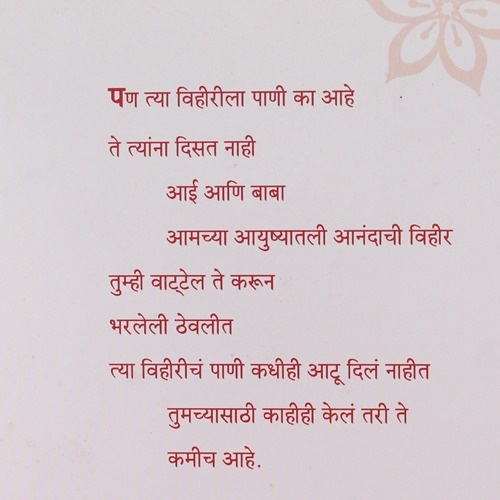 पण त्या विहीरीला पाणी का आहे
ते त्यांना दिसत नाही
आई आणि बाबा
आमच्या आयुष्यातली आनंदाची विहीर
तुम्ही वाट्टेल ते करून
भरलेली ठेवलीत
त्या विहीरीचं पाणी कधीही आटू दिलं नाहीत
तुमच्यासाठी काहीही केलं तरी ते
कमीच आहे.